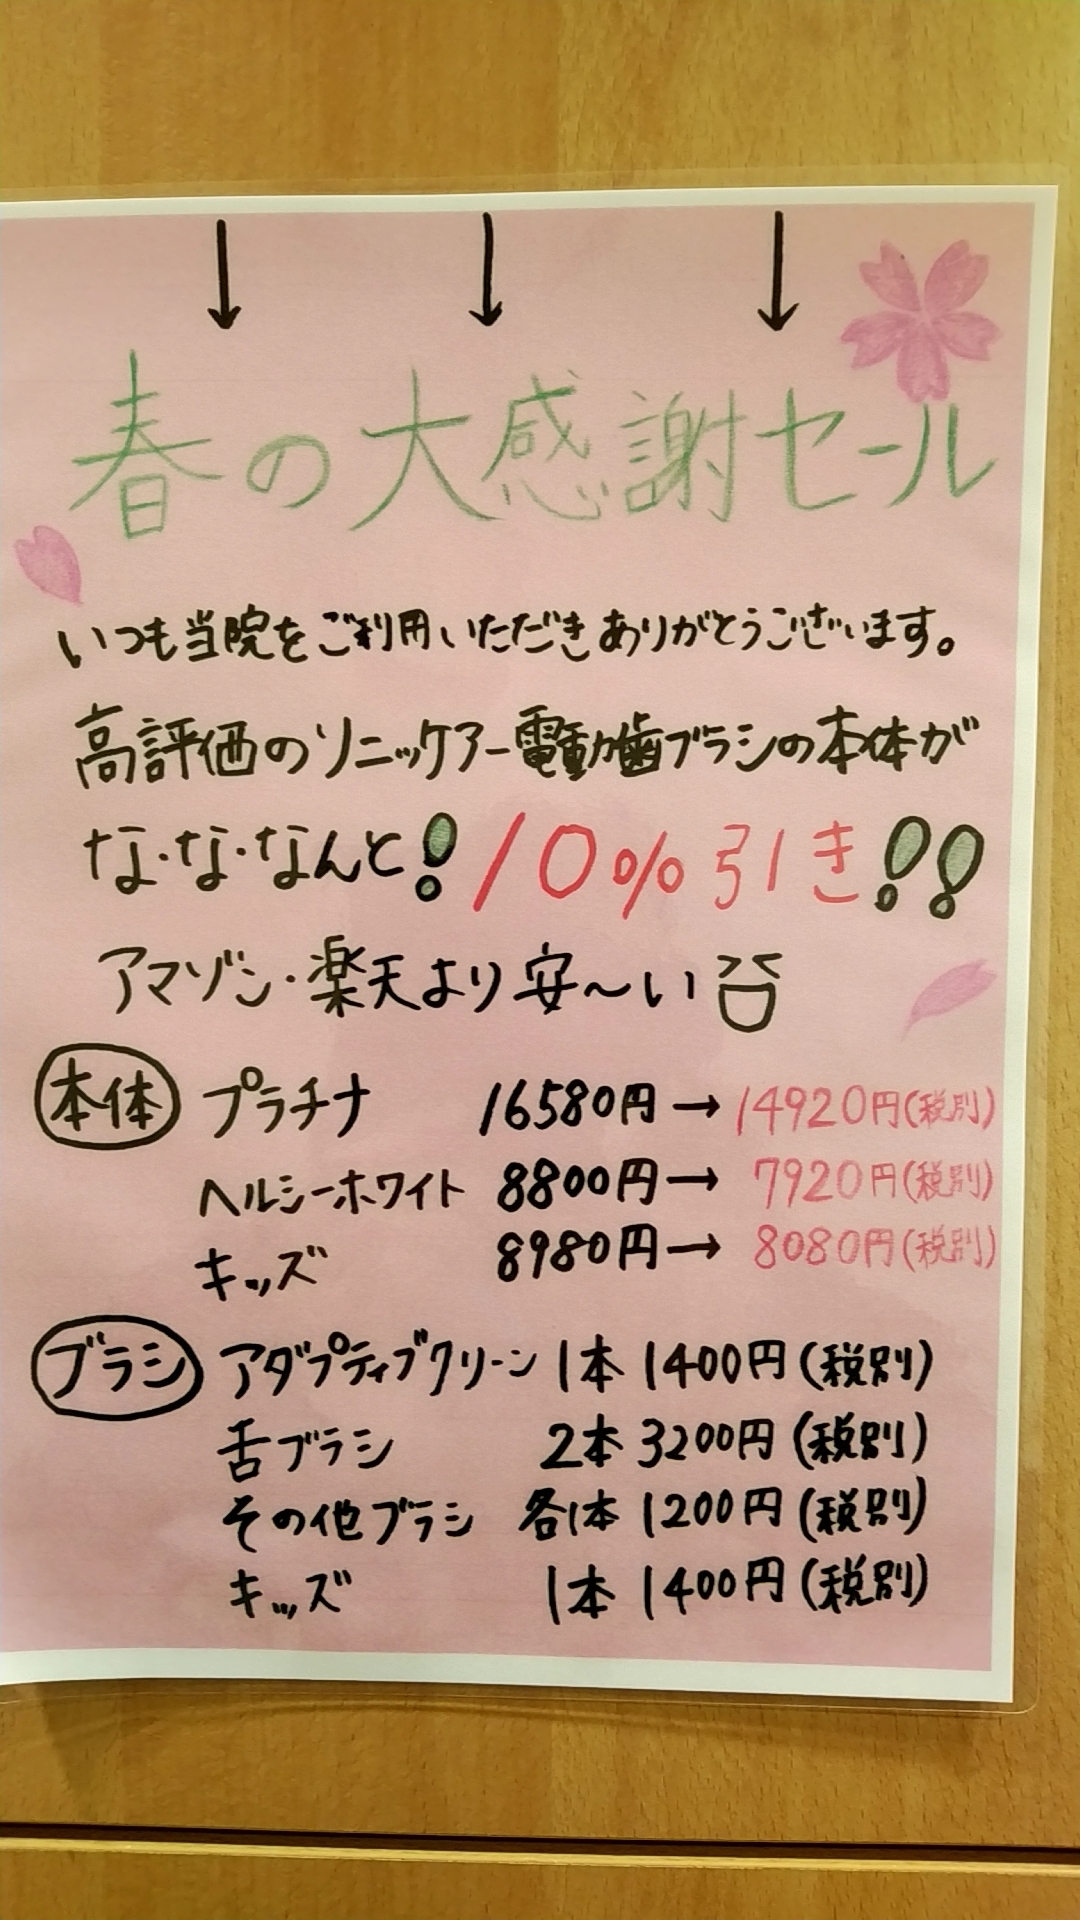 春の大感謝セール
いつも当院をご利用いただきありがとうございます。
高評価のソニッケアー電動歯ブラシの本体が
な・な・なんと!10%引き!!
アマゾン・楽天より安〜い
本体 プラチナ 16580円→14920円(税別)
ヘルシーホワイト 8800円→7920円(税別)
キッズ 8980円→8080円(税別)
ブラシ アダプティブクリーン 1本 1400円(税別)
舌ブラシ 2本 3200円(税別)
その他ブラシ 各1本 1200円(税別)
キッズ 1本 1400円(税別)